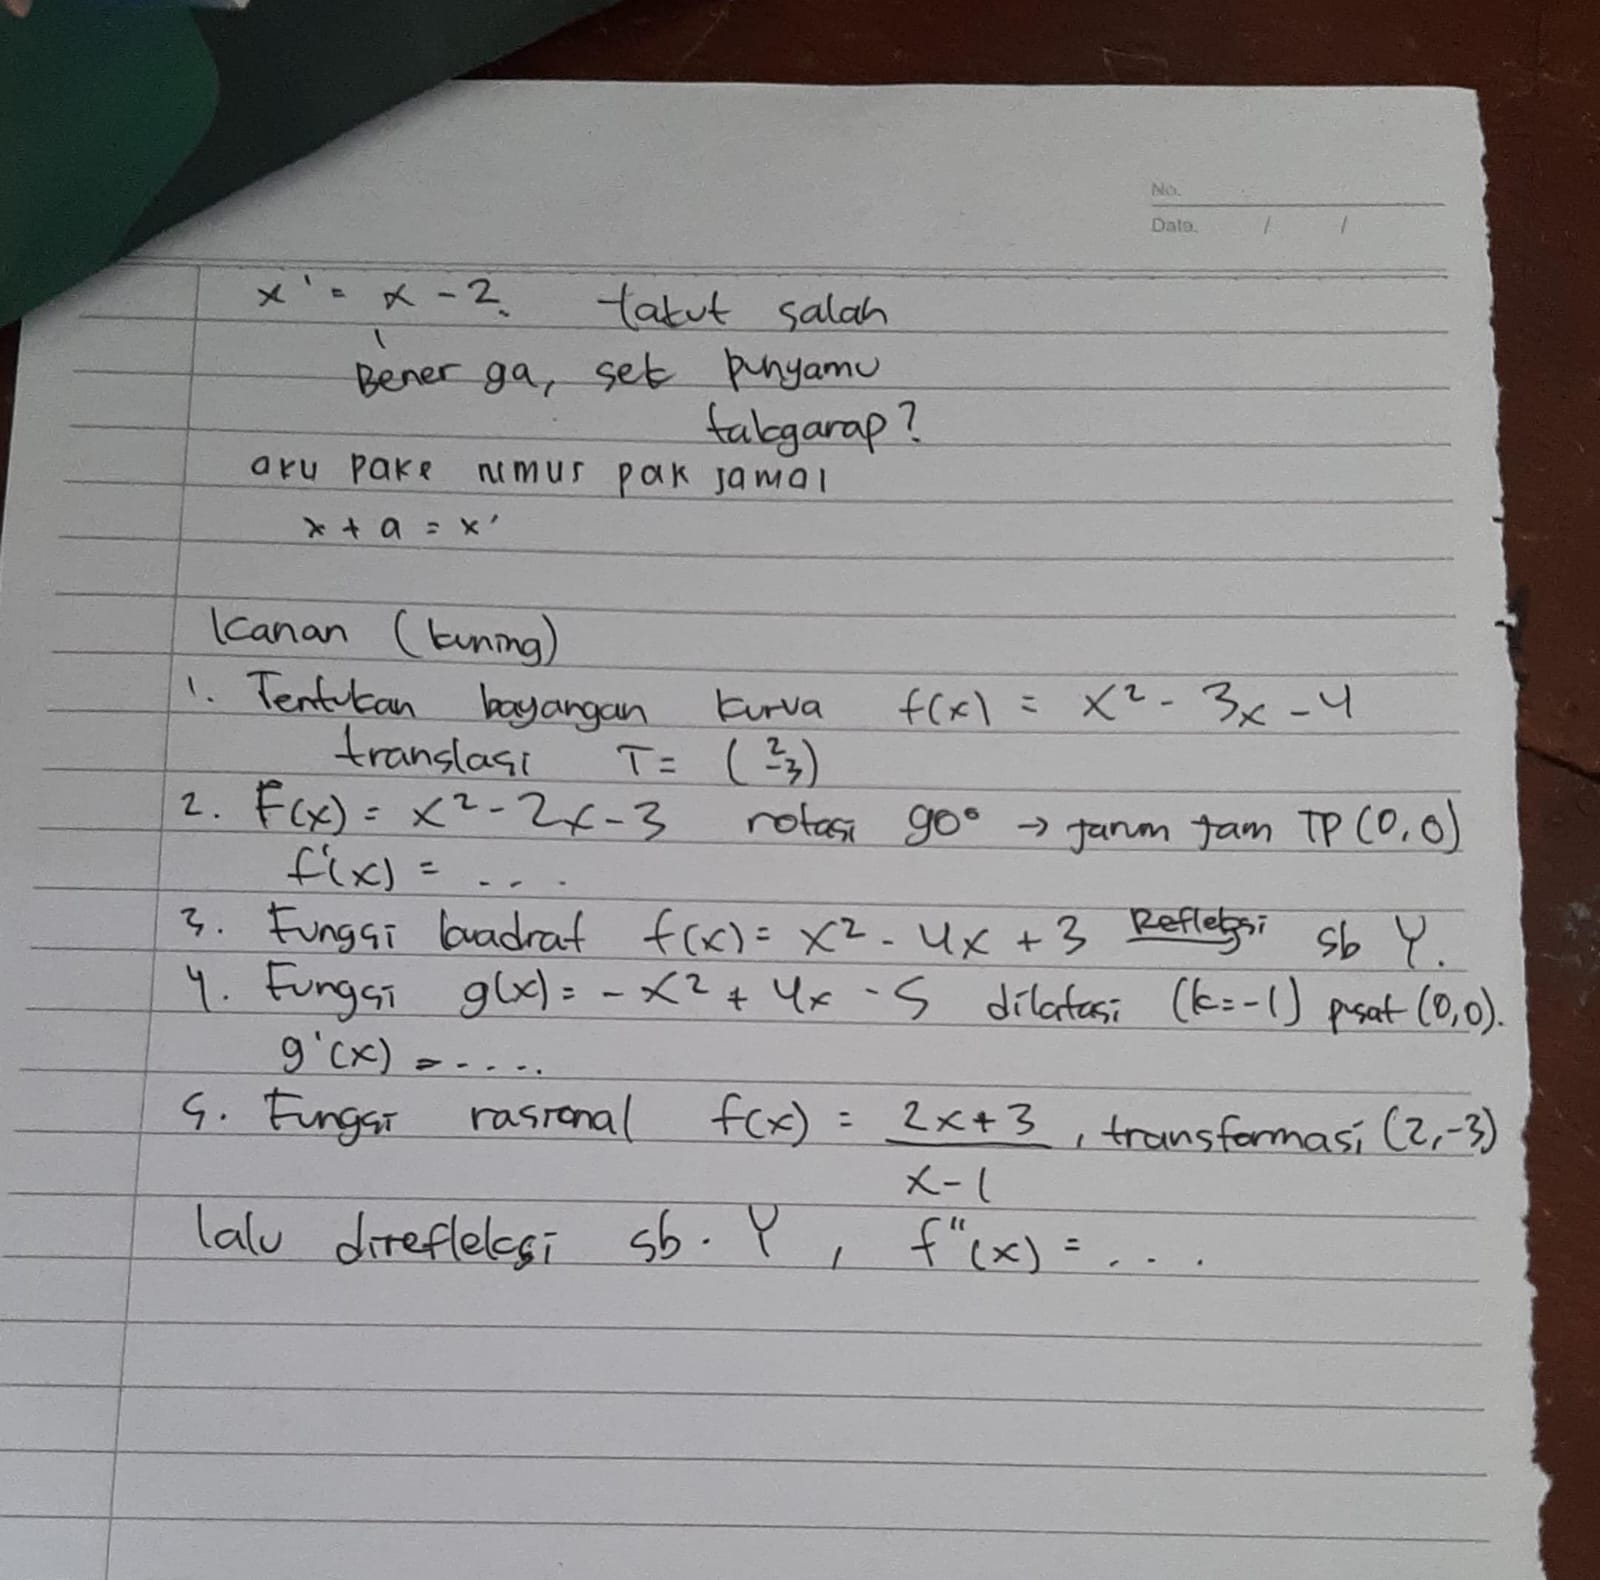 No.
Date. / /
x' = x - 2. takut salah
Bener ga, sek punyamu
takgarap?
aku pake rumus pak jamal
x + a = x'
Kanan (kuning)
1. Tentukan bayangan kurva f(x) = x² - 3x - 4
translasi T = (2 -3)
2. F(x) = x² - 2x - 3 rotasi 90° → jarum jam TP (0,0)
f'(x) = ....
3. Fungsi kuadrat f(x) = x² - 4x + 3 Refleksi sb Y.
4. Fungsi g(x) = -x² + 4x - 5 dilatasi (k=-1) pusat (0,0).
g'(x) = .....
5. Fungsi rasional f(x) = 2x+3 , transformasi (2,-3)
x-1
lalu direfleksi sb. Y , f"(x) = ...